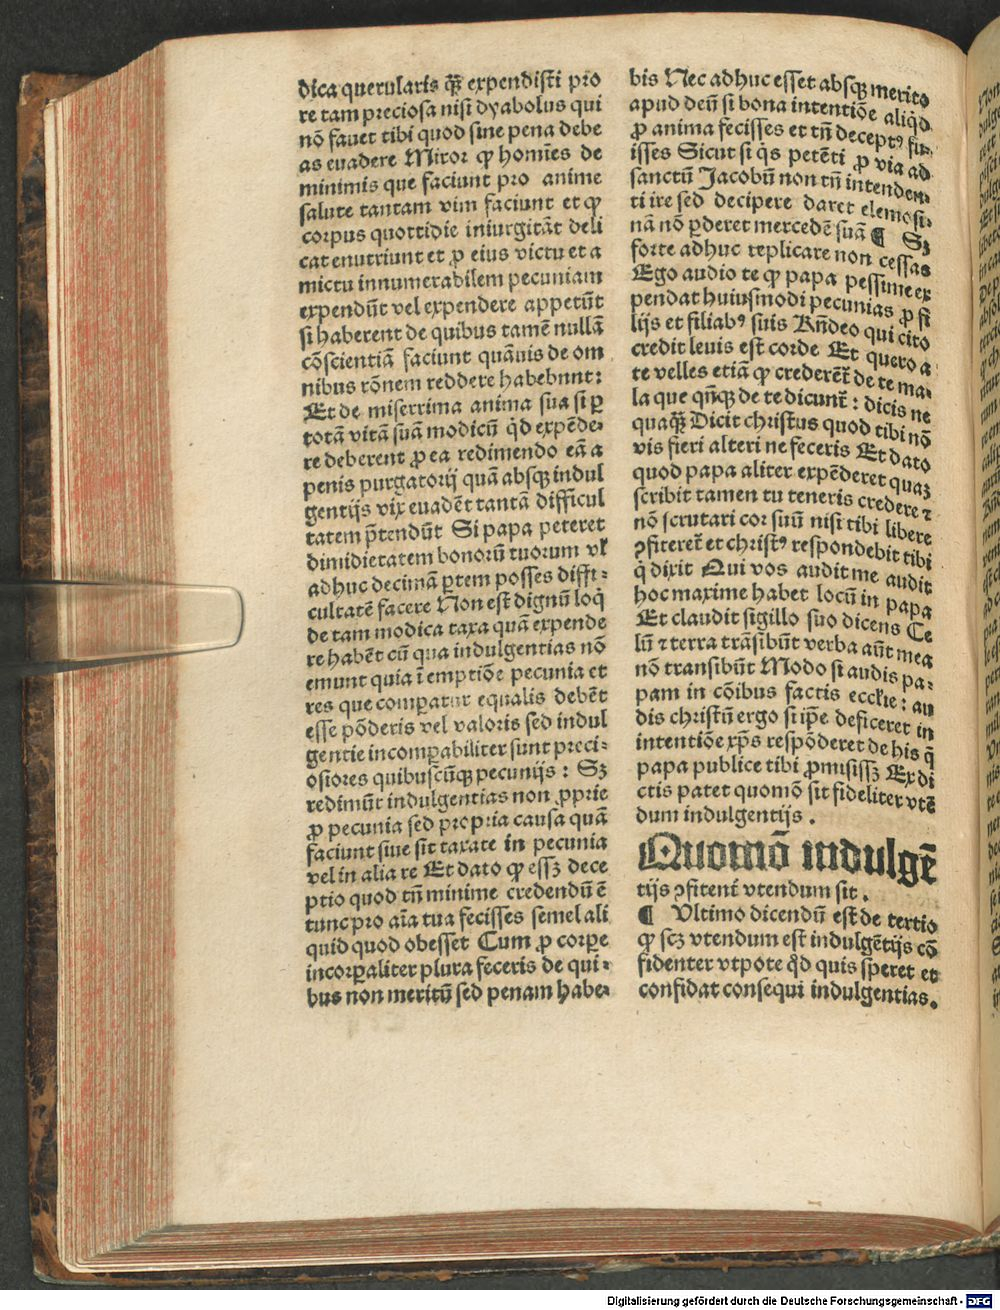 dica querularis qꝫ expendisti pro
re tam preciosa nisi dyabolus qui
nō fauet tibi quod sine pena debe
as euadere Miror ꝙ homīes de
minimis que faciunt pro anime
salute tantam vim faciunt et ꝙ
corpus quottidie iniurgitāt deli
cat enutriunt et ꝓ eius victu et a
mictu innumerabilem pecuniam
expendūt vel expendere appetūt
si haberent de quibus tamē nullā
cōscientiā faciunt quāuis de om
nibus rōnem reddere habebunt:
Et de miserrima anima sua si ꝑ
totā vitā suā modicū qͥd expēde⸗
re deberent ꝓ ea redimendo eā a
penis purgatorij quā absqꝫ indul
gentijs vix euadēt tantā difficul
tatem p̄tendūt Si papa peteret
dimidietatem bonorū tuorum vl̓
adhuc decimā ꝑtem posses diffi⸗
cultatē facere Non est dignū loq̇
de tam modica taxa quā expende
re habēt cū qua indulgentias nō
emunt quia ī emptiōe pecunia et
res que comꝑatur equalis debēt
esse pōderis vel valoris sed indul
gentie incomꝑabiliter sunt preci⸗
osiores quibuscūqꝫ pecunijs: Sꝫ
redimūt indulgentias non ꝓprie
ꝓ pecunia sed propria causa quā
faciunt siue sit taxate in pecunia
vel in alia re Et dato ꝙ essꝫ dece
ptio quod tn̄ minime credendū ē
tunc pro aīa tua fecisses semel ali
quid quod obesset Cum ꝓ corꝑe
incorꝑaliter plura feceris de qui⸗
bus non meritū sed penam habe⸗
bis Nec adhuc esset absqꝫ merito
apud deū si bona intentiōe aliqd̓
ꝓ anima fecisses et tn̄ deceptꝰ fu⸗
isses Sicut si qͥs petēti ꝓ via ad
sanctū Jacobū non tn̄ intenden⸗
ti ire sed decipere daret elemosi⸗
nā nō ꝑderet mercedē suā ¶ Sꝫ
forte adhuc replicare non cessas
Ego audio te ꝙ papa pessime ex
pendat huiusmodi pecunias ꝓ fi
lijs et filiabꝰ suis Rn̄deo qui cito
credit leuis est corde Et quero a
te velles etiā ꝙ crederēt̓ de te ma⸗
la que qn̄qꝫ de te dicunt̓: dicis ne
quaqꝫ̄ Dicit christus quod tibi nō
vis fieri alteri ne feceris Et dato
quod papa aliter expēderet quaꝫ
scribit tamen tu teneris credere ⁊
nō scrutari cor suū nisi tibi libere
ꝯfiteret̓ et christꝰ respondebit tibi
q̇ dixit Qui vos audit me audit
hoc maxime habet locū in papa
Et claudit sigillo suo dicens Ce
lū ⁊ terra trāsibūt verba aūt mea
nō transibūt Modo si audis pa⸗
pam in cōibus factis ecclie: au
dis christū ergo si ipē deficeret in
intentiōe xp̄s respōderet de his q̄
papa publice tibi ꝓmisissꝫ Ex di
ctis patet quomō sit fideliter vtē
dum indulgentijs.
Quomō indulgē
tijs ꝯfitent̓ vtendum sit.
¶ Ultimo dicendū est de tertio
ꝙ scꝫ vtendum est indulgētijs cō
fidenter vtpote qd̓ quis speret et
confidat consequi indulgentias.
Digitalisierung gefördert durch die Deutsche Forschungsgemeinschaft - DFG